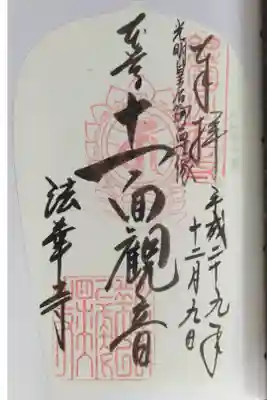 奉拝
平成二十九年
十二月九日
光明皇后御尊像
本尊
十一面観音
法華寺